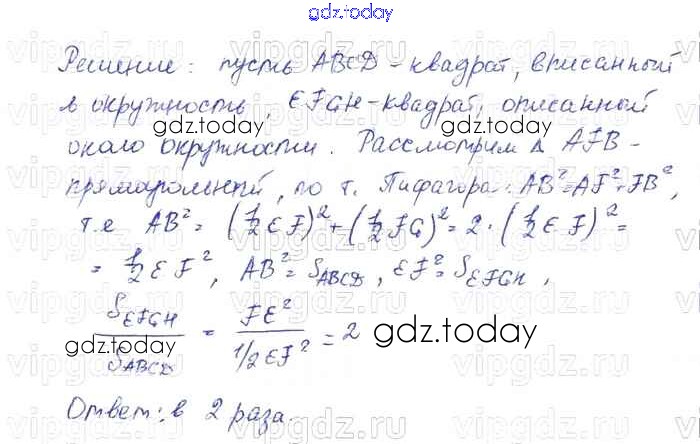 gdz.today
Решение: пусть ABCD - квадрат, вписанный
в окружность, EFGH - квадрат, описанный
gdz.today
gdz.today
около окружности. Рассмотрим Δ AFB -
прямоугольный, по т. Пифагора: AB² = AF² + FB²,
т.е AB² = (1/2 EF)² + (1/2 FG)² = 2 · (1/2 EF)² =
= 1/2 EF², AB² = S_ABCD, EF² = S_EFGH,
S_EFGH / S_ABCD = FE² / 1/2 EF² = 2
gdz.today
gdz.today
Ответ: в 2 раза.